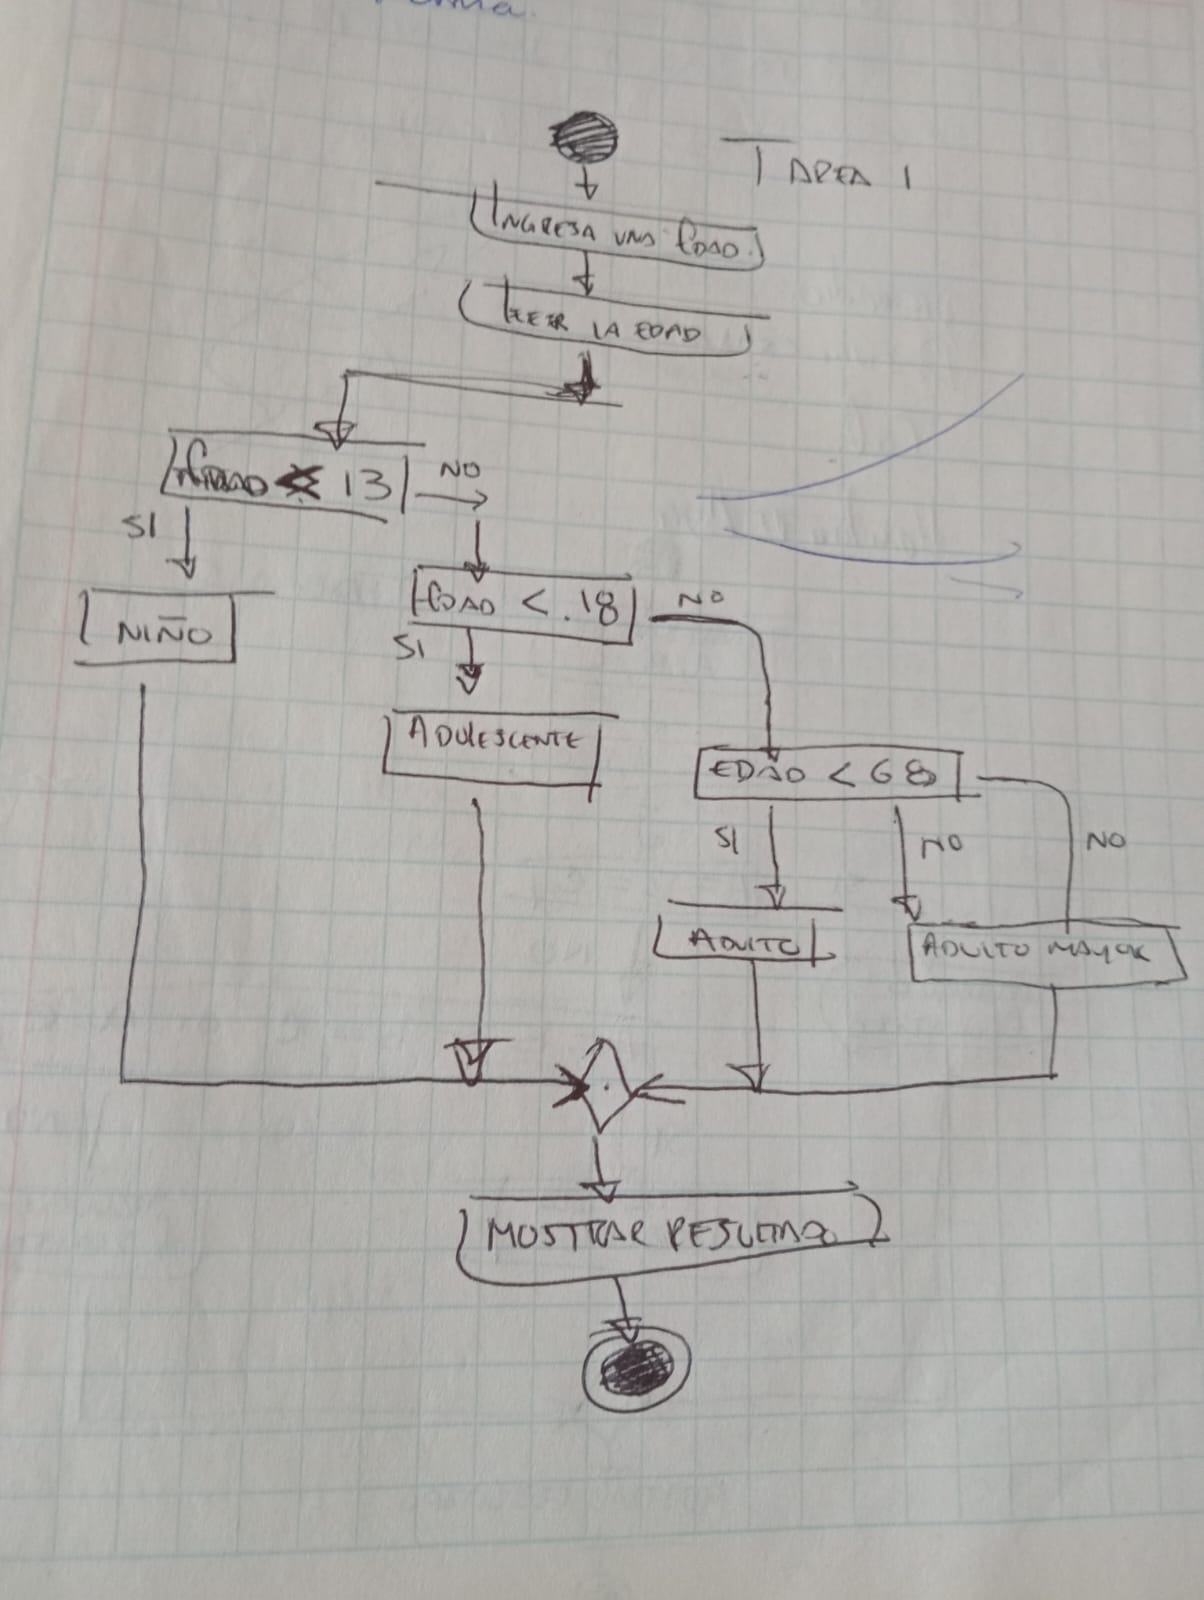 TAREA 1
INGRESA UNA EDAD.
LEER LA EDAD
EDAD < 13
NO
SI
NIÑO
EDAD < .18
NO
SI
ADOLESCENTE
EDAD < 68
SI
NO
NO
ADULTO
ADULTO MAYOR
MOSTRAR RESULTADO